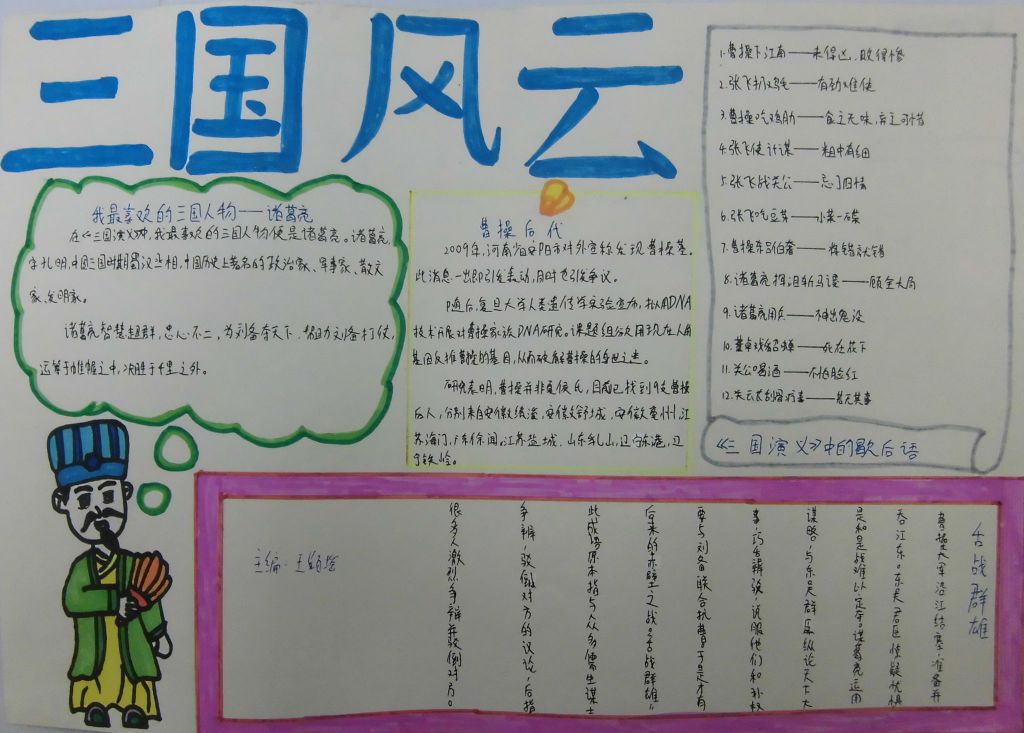 三国风云
我最喜欢的三国人物——诸葛亮
在《三国演义》中,我最喜欢的三国人物便是诸葛亮。诸葛亮,
字孔明,中国三国时期蜀汉丞相,中国历史上著名的政治家、军事家、散文
家、发明家。
诸葛亮智慧超群,忠心不二,为刘备夺天下,帮助刘备打仗,
运筹于帷幄之中,决胜于千里之外。
曹操后代
2009年,河南省安阳市对外宣称发现曹操墓。
此消息一出即引发轰动,同时也引发争议。
随后,复旦大学人类遗传学实验室宣布,拟用DNA
技术开展对曹操家族DNA研究。课题组欲用现在人的
基因反推曹操的基因,从而破解曹操的身世之迷。
研究表明,曹操并非夏侯氏,目前已找到9支曹操
后人,分别来自安徽绩溪,安徽舒城,安徽亳州,江
苏海门,广东徐闻,江苏盐城,山东乳山,辽宁东港,辽
宁铁岭。
1.曹操下江南——来得凶,败得惨
2.张飞扒鸡毛——有劲难使
3.曹操吃鸡肋——食之无味,弃之可惜
4.张飞使计谋——粗中有细
5.张飞战关公——忘了旧情
6.张飞吃豆芽——小菜一碟
7.曹操杀吕伯奢——将错就错
8.诸葛亮挥泪斩马谡——顾全大局
9.诸葛亮用兵——神出鬼没
10.董卓戏貂蝉——死在花下
11.关公喝酒——不怕脸红
12.关云长刮骨疗毒——若无其事
《三国演义》中的歇后语
舌战群雄
曹操大军沿江结寨,准备并
吞江东。东吴君臣惊疑忧惧
是和是战难以定夺。诸葛亮运用
谋略,与东吴群臣纵论天下大
事,巧舌辩驳,说服他们和孙权
要与刘备联合抗曹,于是才有
后来的赤壁之战。“舌战群雄”
此成语原本指与人众多儒生谋士
争辩,驳倒对方的议论,后指
很多人激烈争辩并驳倒对方。
主编:王